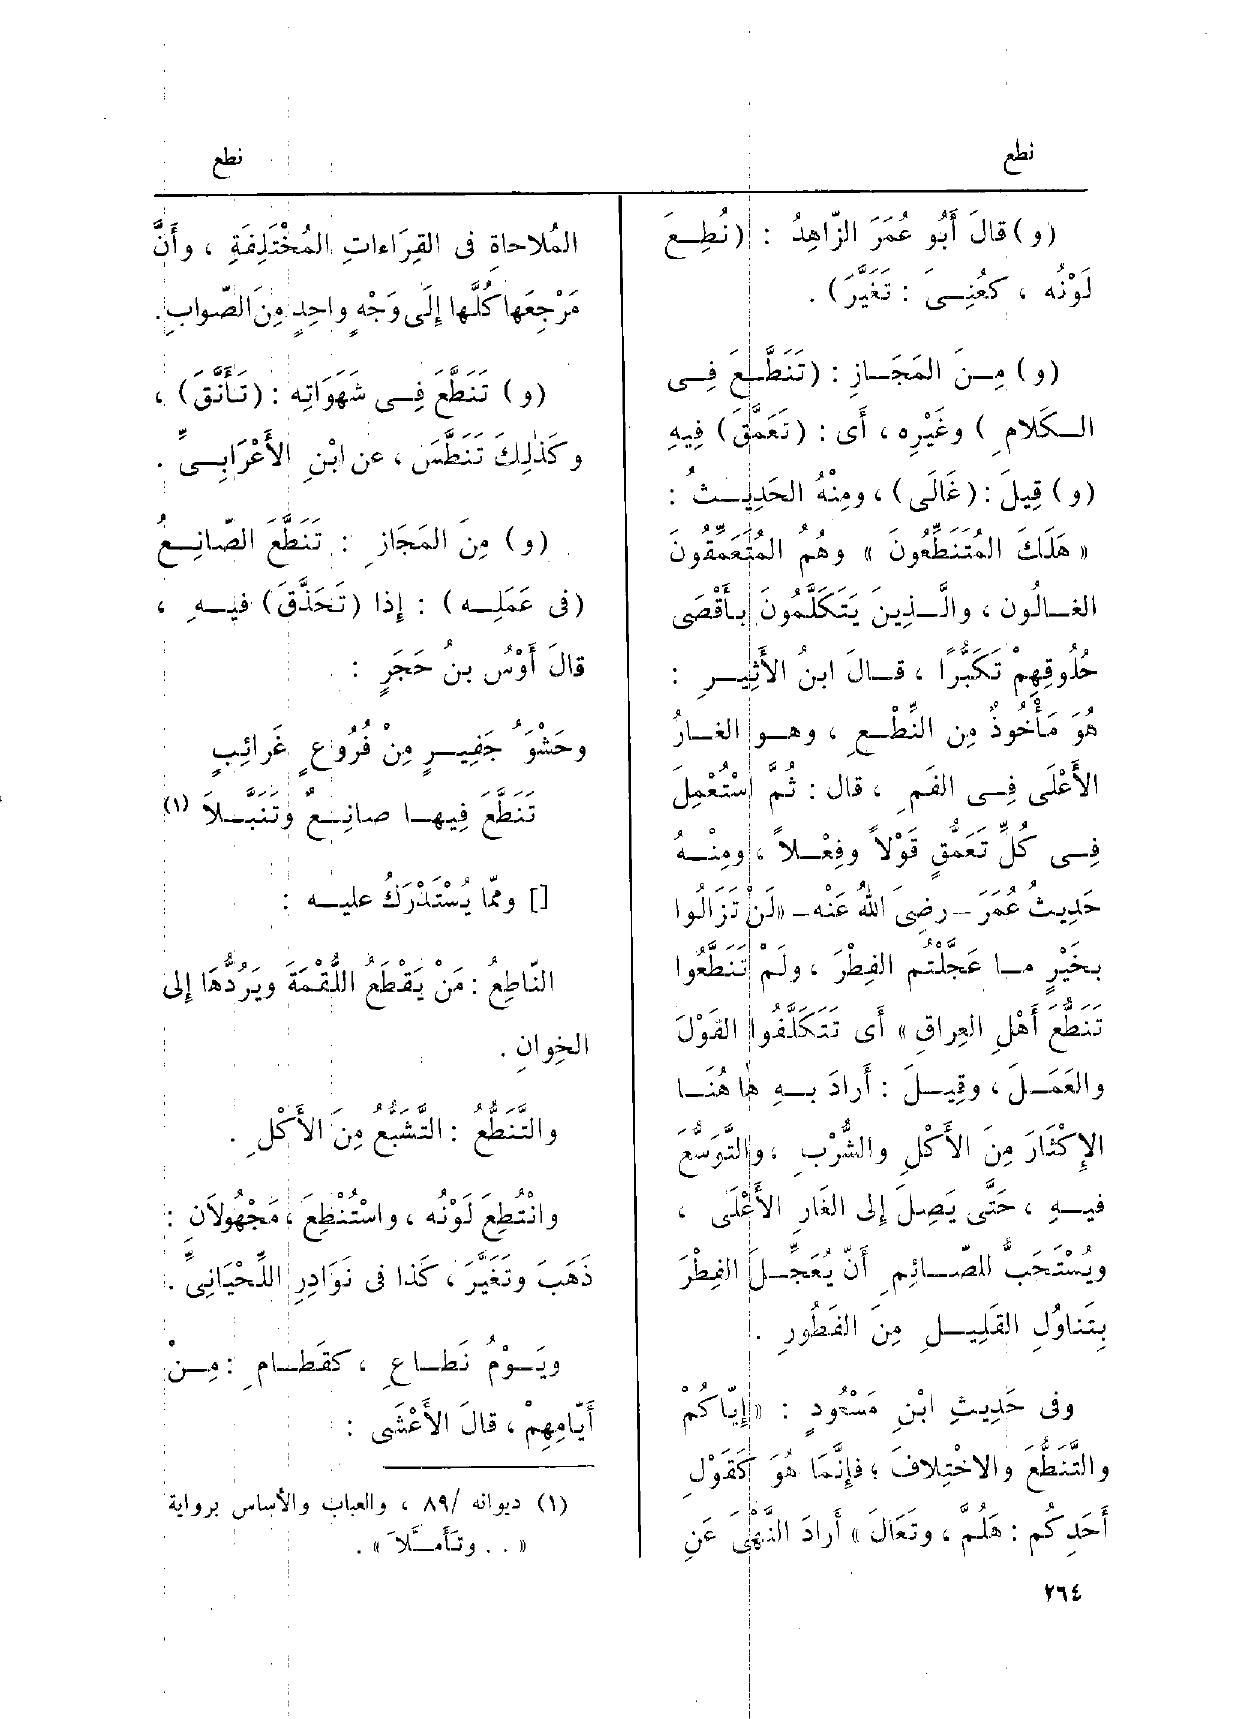 نطع
نطع
(و) قالَ أَبُو عُمَرَ الزّاهِدُ : (نُطِـعَ
لَوْنُه ، كعُنِـىَ : تَغَيَّرَ) .
(و) مِـنَ المَجَـازِ : (تَنَطَّـعَ فِـى
الـكَلامِ ) وغَيْرِه ، أَى : (تَعَمَّقَ) فِيهِ
(و) قِيلَ : (غَالَى) ، ومِنْهُ الحَدِيـثُ :
« هَلَكَ المُتَنَطِّعُونَ » وهُم المُتَعَمِّقُونَ
الغَـالُون ، والَّـذِينَ يَتَكَلَّمُونَ بـأَقْصَى
حُلُوقِهِمْ تَكَبُّرًا ، قَـالَ ابنُ الأَثِيـرِ :
هُوَ مَأْخُوذٌ مِن النِّطْـعِ ، وهـو الغَـارُ
الأَعْلَى فِـى الفَمِ ، قال : ثُمَّ اسْتُعْمِلَ
فِـى كُلِّ تَعَمُّقٍ قَوْلاً وفِعْـلاً ، ومِنْـهُ
حَدِيثُ عُمَرَ - رضِى اللهُ عَنْه - «لَنْ تَزَالُوا
بخَيْرٍ مـا عَجَّلْتُم الفِطْرَ ، ولَمْ تَنَطَّعُوا
تَنَطُّعَ أَهْلِ العِراقِ » أَى تَتَكَلَّفُوا القَوْلَ
والعَمَـلَ ، وقِيـلَ : أَرادَ بـهِ هٰا هُنَـا
الإِكْثَارَ مِنَ الأَكْلِ والشُّرْبِ ، والتَّوَسُّعَ
فيـهِ ، حَتَّى يَصِلَ إلى الغَارِ الأَعْلَى ،
ويُسْتَحَبُّ للصّـائِمِ أَنْ يُعَجِّـلَ الفِطْرَ
بِتَناوُلِ القَلِيـلِ مِنَ الفَطُورِ .
وفى حَدِيثِ ابْنِ مَسْعُودٍ : «إِيّاكُمْ
والتَّنَطُّعَ والاخْتِلافَ ؛ فإنَّمَا هُوَ كَقَوْلِ
أَحَدِكُم : هَلُمَّ ، وتَعَالَ » أَرادَ النَّهْىَ عَنِ
المُلاحاةِ فى القِرَاءاتِ المُخْتَلِفَةِ ، وأَنَّ
مَرْجِعَها كُلَّها إِلَى وَجْهٍ واحِدٍ مِنَ الصّوابِ.
(و) تَنَطَّعَ فِـى شَهَواتِه : (تَأَنَّقَ) ،
وكَذٰلِكَ تَنَطَّسَ ، عن ابْنِ الأَعْرَابِـىِّ .
(و) مِنَ المَجَازِ : تَنَطَّعَ الصّانِـعُ
(فى عَمَلِـه) : إذا (تَحَذَّقَ) فيـهِ ،
قالَ أَوْسُ بنُ حَجَرٍ :
وحَشْوَ جَفِيـرٍ مِنْ فُرُوعٍ غَرائِبٍ
تَنَطَّعَ فِيهـا صانِـعٌ وتَنَبَّـلاَ (١)
[] وممّا يُسْتَدْرَكُ عليـه :
النّاطِعُ : مَنْ يَقْطَعُ اللُّقْمَةَ ويَرُدُّهَا إلى
الخِوانِ .
والتَّنَطُّعُ : التَّشَبُّع مِنَ الأَكْلِ .
وانْتُطِعَ لَوْنُه ، واسْتُنْطِعَ ، مَجْهُولَانِ :
ذَهَبَ وتَغَيَّرَ ، كذا فى نَوَادِرِ اللِّحْيَانِىِّ .
ويَـوْمُ نَطـاعِ ، كقَطـامِ : مِـنْ
أَيّامِهِمْ ، قالَ الأَعْشَى :
(١) ديوانه /٨٩ ، والعباب والأساس برواية
« . . وتَأَمَّـلَا » .
٢٦٤